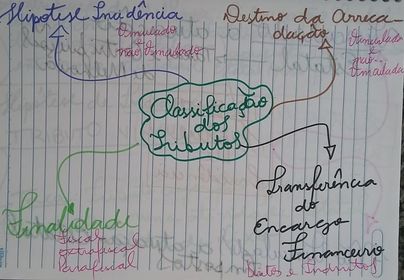 Hipótese Inicidência
Vinculado
não vinculado
Destino da Arreca-
dação
Vinculado
e
não
vinculada
Classificação
dos
Tributos
Finalidade
Fiscal
extrafiscal
Parafiscal
Transferência
do
Encargo
Financeiro
Diretos e Indiretos